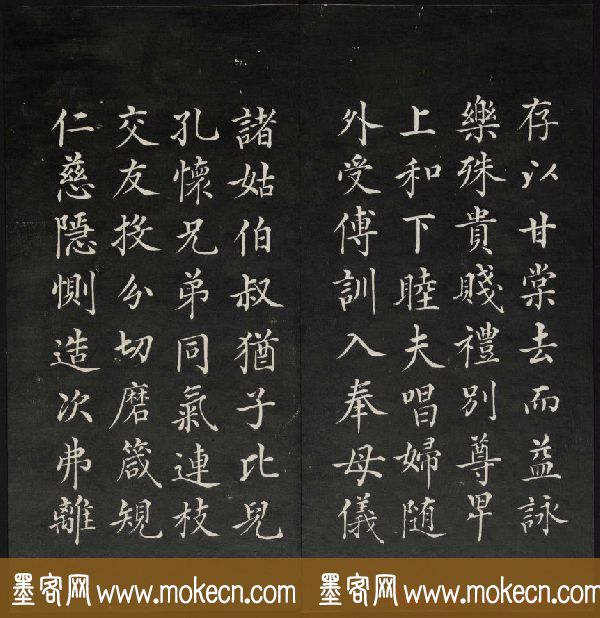 存以甘棠去而益詠
樂殊貴賤禮別尊卑
上和下睦夫唱婦随
外受傅訓入奉母儀
諸姑伯叔猶子比兒
孔懷兄弟同氣連枝
交友投分切磨箴規
仁慈隱惻造次弗離
墨客网 www.mokecn.com 墨客网 www.mokecn.com